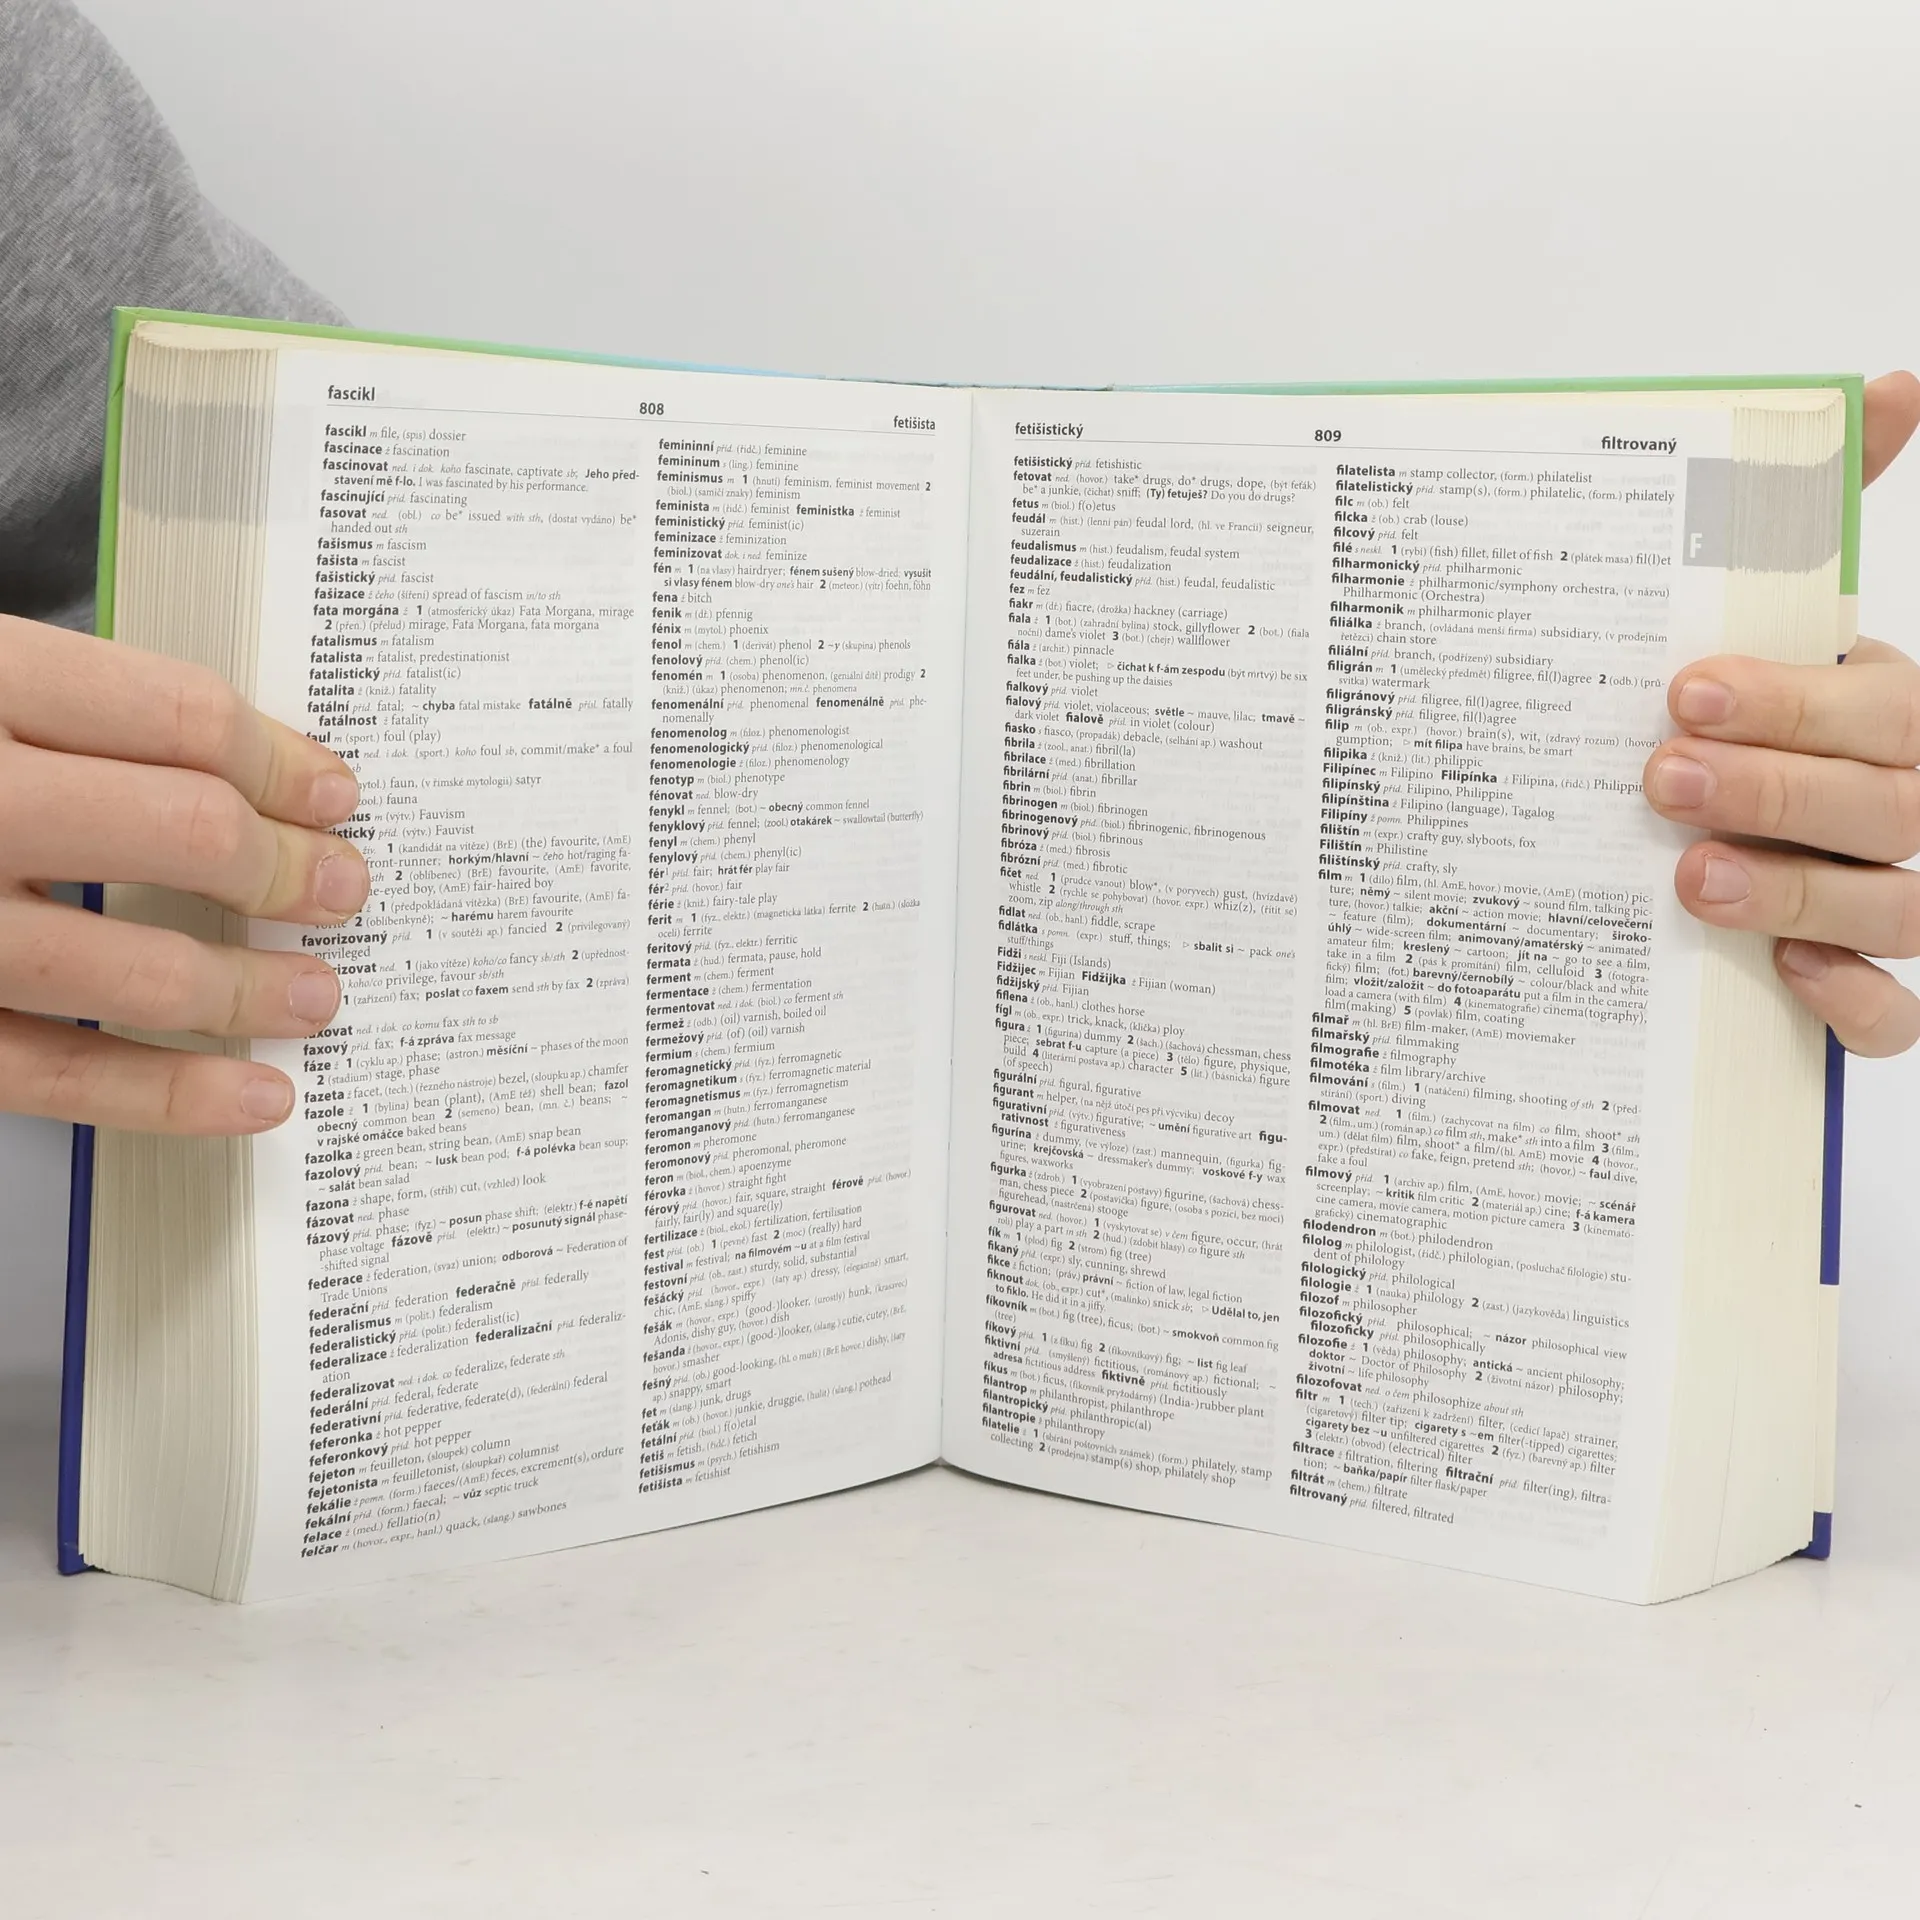 fascikl
808
fetišista
fascikl m file, (spis) dossier
fascinace ž fascination
fascinovat ned. i dok. koho fascinate, captivate sb; Jeho před-
stavení mě f-lo. I was fascinated by his performance.
fascinující příd. fascinating
fasovat ned. (obl.) co be* issued with sth, (dostat vydáno) be*
handed out sth
fašismus m fascism
fašista m fascist
fašistický příd. fascist
fašizace ž čeho (šíření) spread of fascism in/to sth
fata morgána ž 1 (atmosferický úkaz) Fata Morgana, mirage
2 (přen.) (přelud) mirage, Fata Morgana, fata morgana
fatalismus m fatalism
fatalista m fatalist, predestinationist
fatalistický příd. fatalist(ic)
fatalita ž (kniž.) fatality
fatální příd. fatal; ~ chyba fatal mistake fatálně přísl. fatally
fatálnost ž fatality
faul m (sport.) foul (play)
ovat ned. i dok. (sport.) koho foul sb, commit/make* a foul
sb
faun, (v římské mytologii) satyr
fauna
m (výtv.) Fauvism
příd. (výtv.) Fauvist
1 (kandidát na vítěze) (BrE) (the) favourite, (AmE)
front-runner; horkým/hlavní ~ čeho hot/raging fa-
sth 2 (oblíbenec) (BrE) favourite, (AmE) favorite,
-eyed boy, (AmE) fair-haired boy
ž 1 (předpokládaná vítězka) (BrE) favourite, (AmE) fa-
vorite 2 (oblíbenkyně); ~ harému harem favourite
favorizovaný příd. 1 (v soutěži ap.) fancied 2 (privilegovaný)
privileged
rizovat ned. 1 (jako vítěze) koho/co fancy sb/sth 2 (upřednost-
koho/co privilege, favour sb/sth
1 (zařízení) fax; poslat co faxem send sth by fax 2 (zpráva)
faxovat ned. i dok. co komu fax sth to sb
faxový příd. fax; f-á zpráva fax message
fáze ž 1 (cyklu ap.) phase; (astron.) měsíční ~ phases of the moon
2 (stadium) stage, phase
fazeta ž facet, (tech.) (řezného nástroje) bezel, (sloupku ap.) chamfer
fazole ž 1 (bylina) bean (plant), (AmE též) shell bean; fazol
obecný common bean 2 (semeno) bean, (mn. č.) beans; ~
v rajské omáčce baked beans
fazolka ž green bean, string bean, (AmE) snap bean
fazolový příd. bean; ~ lusk bean pod; f-á polévka bean soup;
~ salát bean salad
fazona ž shape, form, (střih) cut, (vzhled) look
fázovat ned. phase
fázový příd. phase; (fyz.) ~ posun phase shift; (elektr.) f-é napětí
phase voltage fázově přísl. (elektr.) ~ posunutý signál phase-
-shifted signal
federace ž federation, (svaz) union; odborová ~ Federation of
Trade Unions
federační příd. federation federačně přísl. federally
federalismus m (polit.) federalism
federalistický příd. (polit.) federalist(ic)
federalizace ž federalization federalizační příd. federaliz-
ation
federalizovat ned. i dok. co federalize, federate sth
federální příd. federal, federate
federativní příd. federative, federate(d), (federální) federal
feferonka ž hot pepper
feferonkový příd. hot pepper
fejeton m feuilleton, (sloupek) column
fejetonista m feuilletonist, (sloupkař) columnist
fekálie ž pomn. (form.) faeces/(AmE) feces, excrement(s), ordure
fekální příd. (form.) faecal; ~ vůz septic truck
felace ž (med.) fellatio(n)
felčar m (hovor., expr., hanl.) quack, (slang.) sawbones
femininní příd. (řidč.) feminine
femininum s (ling.) feminine
feminismus m 1 (hnutí) feminism, feminist movement 2
(biol.) (samičí znaky) feminism
feminista m (řidč.) feminist feministka ž feminist
feministický příd. feminist(ic)
feminizace ž feminization
feminizovat dok. i ned. feminize
fén m 1 (na vlasy) hairdryer; fénem sušený blow-dried; vysušit
si vlasy fénem blow-dry one's hair 2 (meteor.) (vítr) foehn, föhn
fena ž bitch
fenik m (dř.) pfennig
fénix m (mytol.) phoenix
fenol m (chem.) 1 (derivát) phenol 2 ~y (skupina) phenols
fenolový příd. (chem.) phenol(ic)
fenomén m 1 (osoba) phenomenon, (geniální dítě) prodigy 2
(kniž.) (úkaz) phenomenon; mn.č. phenomena
fenomenální příd. phenomenal fenomenálně přísl. phe-
nomenally
fenomenolog m (filoz.) phenomenologist
fenomenologický příd. (filoz.) phenomenological
fenomenologie ž (filoz.) phenomenology
fenotyp m (biol.) phenotype
fénovat ned. blow-dry
fenykl m fennel; (bot.) ~ obecný common fennel
fenyklový příd. fennel; (zool.) otakárek ~ swallowtail (butterfly)
fenyl m (chem.) phenyl
fenylový příd. (chem.) phenyl(ic)
fér¹ příd. fair; hrát fér play fair
fér² příd. (hovor.) fair
férie ž (kniž.) fairy-tale play
ferit m 1 (fyz., elektr.) (magnetická látka) ferrite 2 (hutn.) (složka
oceli) ferrite
feritový příd. (fyz., elektr.) ferritic
fermata ž (hud.) fermata, pause, hold
ferment m (chem.) ferment
fermentace ž (chem.) fermentation
fermentovat ned. i dok. (biol.) co ferment sth
fermež ž (odb.) (oil) varnish, boiled oil
fermežový příd. (of) (oil) varnish
fermium s (chem.) fermium
feromagnetický příd. (fyz.) ferromagnetic
feromagnetikum s (fyz.) ferromagnetic material
feromagnetismus m (fyz.) ferromagnetism
feromangan m (hutn.) ferromanganese
feromanganový příd. (hutn.) ferromanganese
feromon m pheromone
feromonový příd. pheromonal, pheromone
feron m (biol., chem.) apoenzyme
férovka ž (hovor.) straight fight
férový příd. (hovor.) fair, square, straight férově přísl. (hovor.)
fairly, fair(ly) and square(ly)
fertilizace ž (biol., ekol.) fertilization, fertilisation
fest přísl. (ob.) 1 (pevně) fast 2 (moc) (really) hard
festival m festival; na filmovém ~u at a film festival
festovní příd. (ob., zast.) sturdy, solid, substantial
fešácký příd. (hovor., expr.) (šaty ap.) dressy, (elegantní) smart,
chic, (AmE, slang.) spiffy
fešák m (hovor., expr.) (good-)looker, (urostlý) hunk, (krasavec)
Adonis, dishy guy, (hovor.) dish
fešanda ž (hovor., expr.) (good-)looker, (slang.) cutie, cutey, (BrE,
hovor.) smasher
fešný příd. (ob.) good-looking, (hl. o muži) (BrE hovor.) dishy, (šaty
ap.) snappy, smart
fet m (slang.) junk, drugs
feťák m (ob.) (hovor.) junkie, druggie, (hašiš) (slang.) pothead
fetální příd. (biol.) f(o)etal
fetiš m fetish, (řidč.) fetich
fetišismus m (psych.) fetishism
fetišista m fetishist
fetišistický
809
filtrovaný
fetišistický příd. fetishistic
fetovat ned. (hovor.) take* drugs, do* drugs, dope, (být feťák)
be* a junkie, (čichat) sniff; (Ty) fetuješ? Do you do drugs?
fetus m (biol.) f(o)etus
feudál m (hist.) (lenní pán) feudal lord, (hl. ve Francii) seigneur,
suzerain
feudalismus m (hist.) feudalism, feudal system
feudalizace ž (hist.) feudalization
feudální, feudalistický příd. (hist.) feudal, feudalistic
fez m fez
fiakr m (dř.) fiacre, (drožka) hackney (carriage)
fiala ž 1 (bot.) (zahradní bylina) stock, gillyflower 2 (bot.) (fiala
noční) dame's violet 3 (bot.) (chejr) wallflower
fiála ž (archit.) pinnacle
fialka ž (bot.) violet; ▷ čichat k f-ám zespodu (být mrtvý) be six
feet under, be pushing up the daisies
fialkový příd. violet
fialový příd. violet, violaceous; světle ~ mauve, lilac; tmavě ~
dark violet fialově přísl. in violet (colour)
fiasko s fiasco, (propadák) debacle, (selhání ap.) washout
fibrila ž (zool., anat.) fibril(la)
fibrilace ž (med.) fibrillation
fibrilární příd. (anat.) fibrillar
fibrin m (biol.) fibrin
fibrinogen m (biol.) fibrinogen
fibrinogenový příd. (biol.) fibrinogenic, fibrinogenous
fibrinový příd. (biol.) fibrinous
fibróza ž (med.) fibrosis
fibrózní příd. (med.) fibrotic
fičet ned. 1 (prudce vanout) blow*, (v poryvech) gust, (hvízdavě)
whistle 2 (rychle se pohybovat) (hovor. expr.) whiz(z), (řítit se)
zoom, zip along/through sth
fidlat ned. (ob., hanl.) fiddle, scrape
fidlátka s pomn. (expr.) stuff, things; ▷ sbalit si ~ pack one's
stuff/things
Fidži s neskl. Fiji (Islands)
Fidžijec m Fijian Fidžijka ž Fijian (woman)
fidžijský příd. Fijian
fiflena ž (ob., hanl.) clothes horse
fígl m (ob., expr.) trick, knack, (klička) ploy
figura ž 1 (figurína) dummy 2 (šach.) (šachová) chessman, chess
piece; sebrat f-u capture (a piece) 3 (tělo) figure, physique,
build 4 (literární postava ap.) character 5 (lit.) (básnická) figure
(of speech)
figurální příd. figural, figurative
figurant m helper, (na nějž útočí pes při výcviku) decoy
figurativní příd. (výtv.) figurative; ~ umění figurative art figu-
rativnost ž figurativeness
figurína ž dummy, (ve výloze) (zast.) mannequin, (figurka) fig-
urine; krejčovská ~ dressmaker's dummy; voskové f-y wax
figures, waxworks
figurka ž (zdrob.) 1 (vyobrazení postavy) figurine, (šachová) chess-
man, chess piece 2 (postavička) figure, (osoba s pozicí, bez moci)
figurehead, (nastrčená) stooge
figurovat ned. (hovor.) 1 (vyskytovat se) v čem figure, occur, (hrát
roli) play a part in sth 2 (hud.) (zdobit hlasy) co figure sth
fík m 1 (plod) fig 2 (strom) fig (tree)
fikaný příd. (expr.) sly, cunning, shrewd
fikce ž fiction; (práv.) právní ~ fiction of law, legal fiction
fiknout dok. (ob., expr.) cut*, (malinko) snick sb; ▷ Udělal to, jen
to fiklo. He did it in a jiffy.
fíkovník m (bot.) fig (tree), ficus; (bot.) ~ smokvoň common fig
(tree)
fíkový příd. 1 (z fíku) fig 2 (fíkovníkový) fig; ~ list fig leaf
fiktivní příd. (smyšlený) fictitious, (románový ap.) fictional; ~
adresa fictitious address fiktivně přísl. fictitiously
fíkus m (bot.) ficus, (fíkovník pryžodárný) (India-)rubber plant
filantrop m philanthropist, philanthrope
filantropický příd. philanthropic(al)
filantropie ž philanthropy
filatelie ž 1 (sbírání poštovních známek) (form.) philately, stamp
collecting 2 (prodejna) stamp(s) shop, philately shop
filatelista m stamp collector, (form.) philatelist
filatelistický příd. stamp(s), (form.) philatelic, (form.) philately
filc m (ob.) felt
filcka ž (ob.) crab (louse)
filcový příd. felt
filé s neskl. 1 (rybí) (fish) fillet, fillet of fish 2 (plátek masa) fil(l)et
filharmonický příd. philharmonic
filharmonie ž philharmonic/symphony orchestra, (v názvu)
Philharmonic (Orchestra)
filharmonik m philharmonic player
filiálka ž branch, (ovládaná menší firma) subsidiary, (v prodejním
řetězci) chain store
filiální příd. branch, (podřízený) subsidiary
filigrán m 1 (umělecký předmět) filigree, fil(l)agree 2 (odb.) (prů-
svitka) watermark
filigránový příd. filigree, fil(l)agree, filigreed
filigránský příd. filigree, fil(l)agree
filip m (ob., expr.) (hovor.) brain(s), wit, (zdravý rozum) (hovor.)
gumption; ▷ mít filipa have brains, be smart
filipika ž (kniž.) (lit.) philippic
Filipínec m Filipino Filipínka ž Filipina, (řidč.) Philippin
filipínský příd. Filipino, Philippine
filipínština ž Filipino (language), Tagalog
Filipíny ž pomn. Philippines
filištín m (expr.) crafty guy, slyboots, fox
Filištín m Philistine
filištínský příd. crafty, sly
film m 1 (dílo) film, (hl. AmE, hovor.) movie, (AmE) (motion) pic-
ture; němý ~ silent movie; zvukový ~ sound film, talking pic-
ture, (hovor.) talkie; akční ~ action movie; hlavní/celovečerní
~ feature (film); dokumentární ~ documentary; široko-
úhlý ~ wide-screen film; animovaný/amatérský ~ animated/
amateur film; kreslený ~ cartoon; jít na ~ go to see a film,
take in a film 2 (pás k promítání) film, celluloid 3 (fotogra-
fický) film; (fot.) barevný/černobílý ~ colour/black and white
film; vložit/založit ~ do fotoaparátu put a film in the camera/
load a camera (with film) 4 (kinematografie) cinema(tography),
film(making) 5 (povlak) film, coating
filmař m (hl. BrE) film-maker, (AmE) moviemaker
filmařský příd. filmmaking
filmografie ž filmography
filmotéka ž film library/archive
filmování s (film.) 1 (natáčení) filming, shooting of sth 2 (před-
stírání) (sport.) diving
filmovat ned. 1 (film.) (zachycovat na film) co film, shoot* sth
2 (film., um.) (román ap.) co film sth, make* sth into a film 3 (film.,
um.) (dělat film) film, shoot* a film/(hl. AmE) movie 4 (hovor.,
expr.) (předstírat) co fake, feign, pretend sth; (hovor.) ~ faul dive,
fake a foul
filmový příd. 1 (archiv ap.) film, (AmE, hovor.) movie; ~ scénář
screenplay; ~ kritik film critic 2 (materiál ap.) cine; f-á kamera
cine camera, movie camera, motion picture camera 3 (kinemato-
grafický) cinematographic
filodendron m (bot.) philodendron
filolog m philologist, (řidč.) philologian, (posluchač filologie) stu-
dent of philology
filologický příd. philological
filologie ž 1 (nauka) philology 2 (zast.) (jazykověda) linguistics
filozof m philosopher
filozofický příd. philosophical; ~ názor philosophical view
filozoficky přísl. philosophically
filozofie ž 1 (věda) philosophy; antická ~ ancient philosophy;
doktor ~ Doctor of Philosophy 2 (životní názor) philosophy;
životní ~ life philosophy
filozofovat ned. o čem philosophize about sth
filtr m 1 (tech.) (zařízení k zadržení) filter, (čedicí lapač) strainer,
(cigaretový) filter tip; cigarety s ~em filter(-tipped) cigarettes;
cigarety bez ~u unfiltered cigarettes 2 (fyz.) (barevný ap.) filter
3 (elektr.) (obvod) (electrical) filter
filtrace ž filtration, filtering filtrační příd. filter(ing), filtra-
tion; ~ baňka/papír filter flask/paper
filtrát m (chem.) filtrate
filtrovaný příd. filtered, filtrated
F